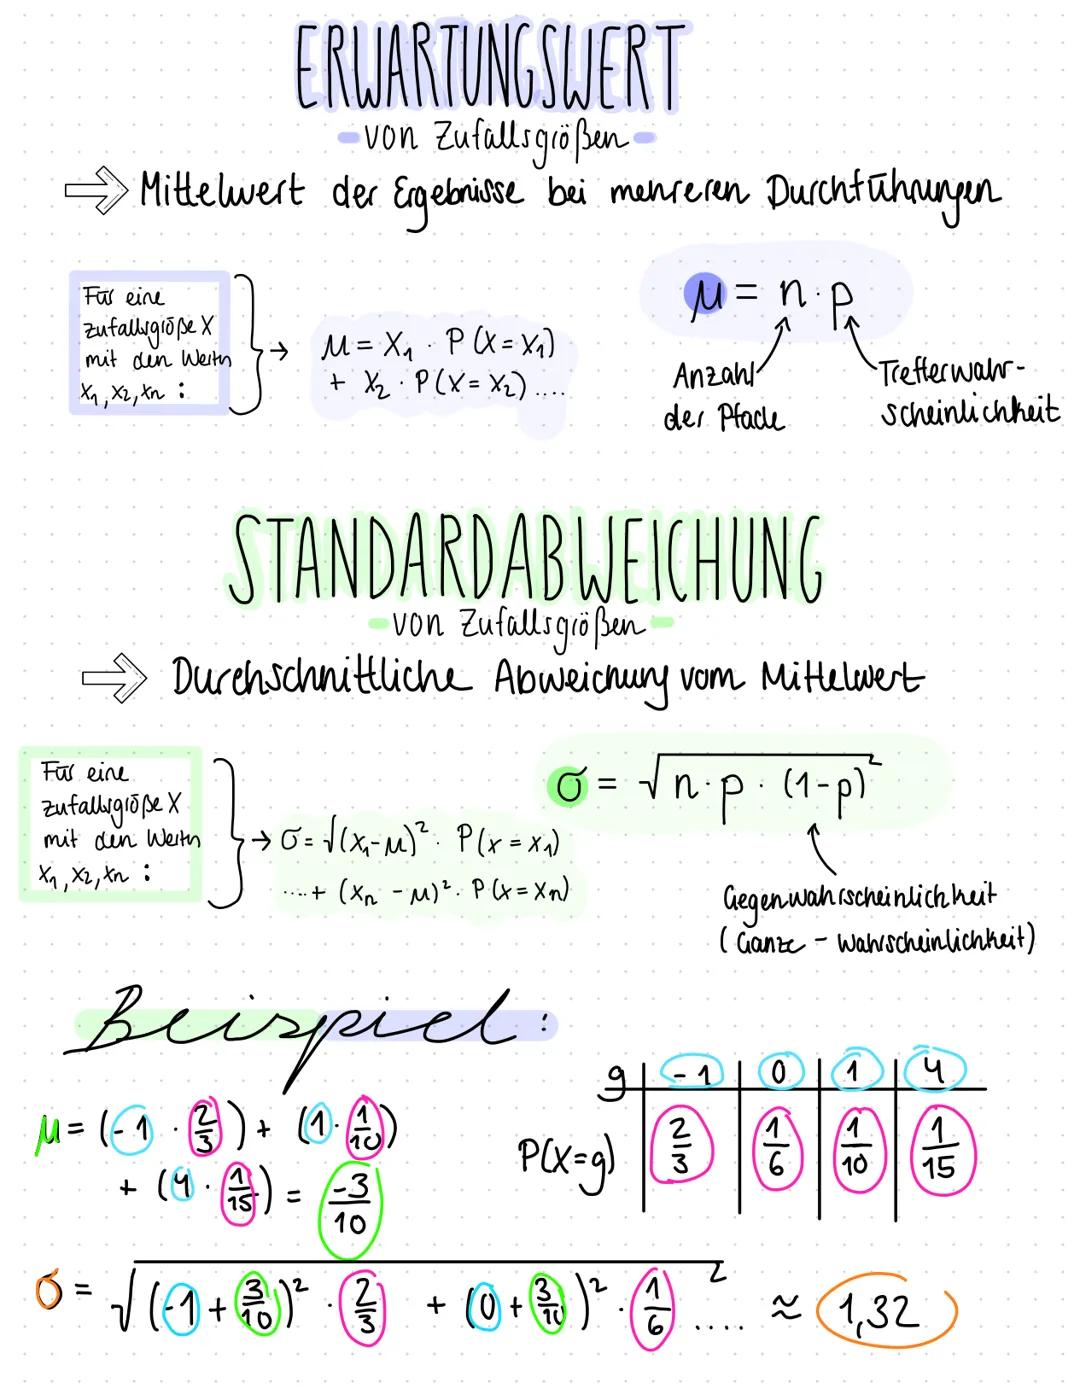 ERWARTUNGSWERT
- von Zufallsgrößen -
⇒ Mittelwert der Ergebnisse bei mehreren Durchführungen
Für eine
Zufallsgröße X
mit den Werten
x₁, x₂, xn :
→ μ = X₁ · P(X = X₁)
+ X₂ · P(X = X₂) ....
μ = n · p
Anzahl
der Pfade
Trefferwahr-
scheinlichkeit
STANDARDABWEICHUNG
- von Zufallsgrößen -
⇒ Durchschnittliche Abweichung vom Mittelwert
Für eine
Zufallsgröße X
mit den Werten
x₁, x₂, xn :
→ σ = √(x₁-μ)² · P(x = x₁)
....+ (xn - μ)² · P(x = xn)
σ = √n · p · (1-p)²
Gegenwahrscheinlichkeit
(Ganze - Wahrscheinlichkeit)
Beispiel :
g | -1 | 0 | 1 | 4
P(X=g) | 2/3 | 1/6 | 1/10 | 1/15
μ = (-1 · 2/3) + (1 · 1/10)
+ (4 · 1/15) = -3/10
σ = √(-1 + 3/10)² · 2/3 + (0 + 3/10)² · 1/6 ....² ≈ 1,32